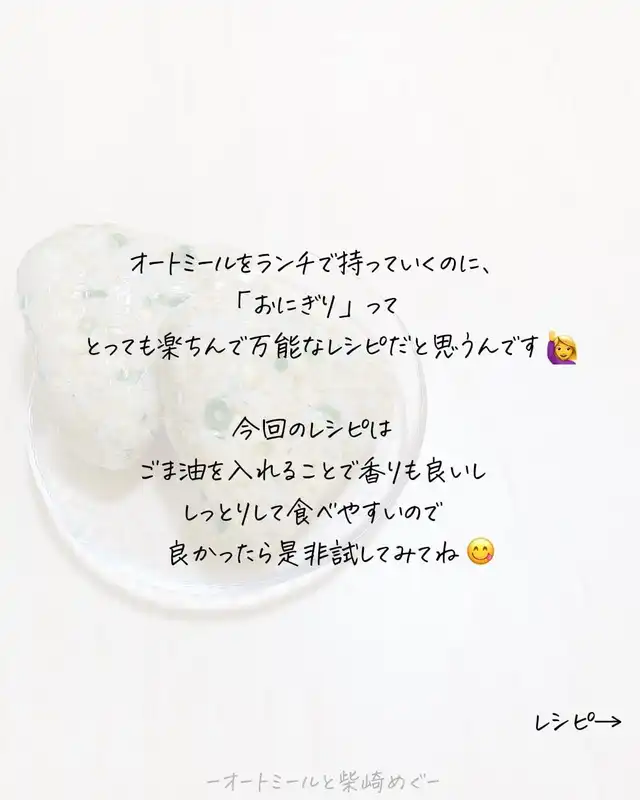 オートミールをランチで持っていくのに、
「おにぎり」って
とっても楽ちんで万能なレシピだと思うんです🙋‍♀️
今回のレシピは
ごま油を入れることで香りも良いし
しっとりして食べやすいので
良かったら是非試してみてね😋
レシピ→
−オートミールと柴崎めぐ−